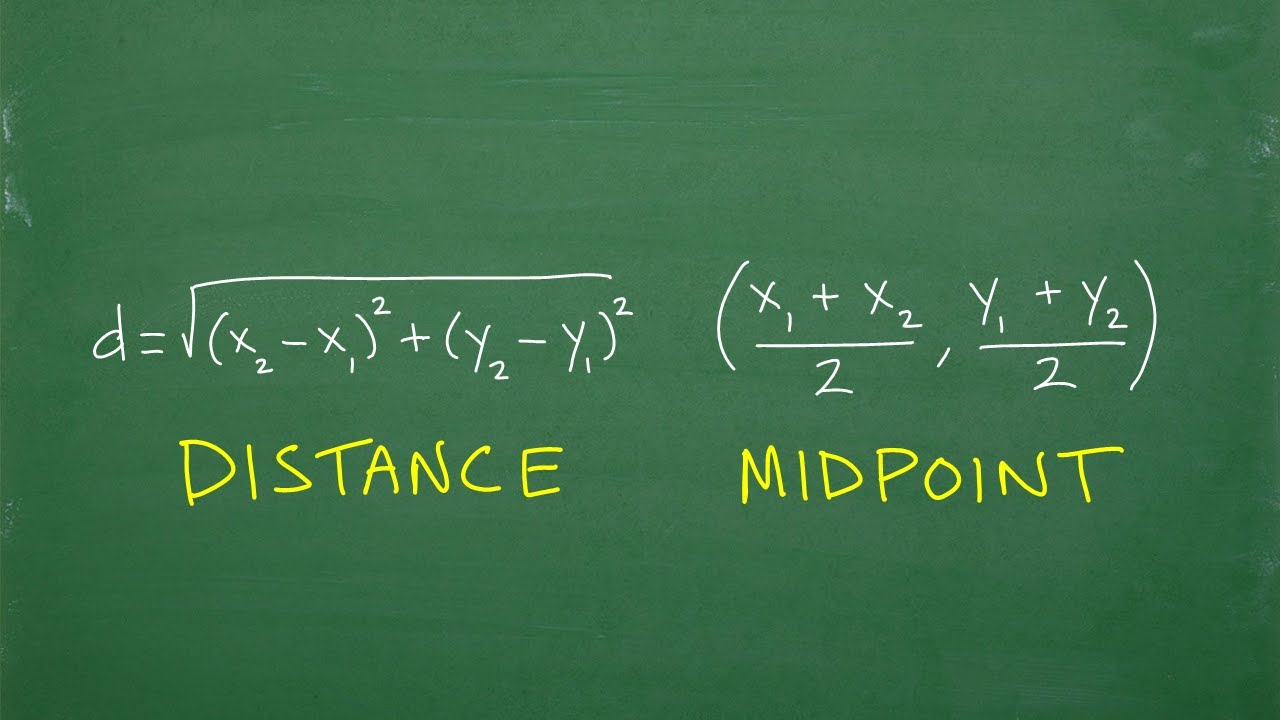 d = √(x₂ − x₁)² + (y₂ − y₁)²
(x₁ + x₂ / 2 , y₁ + y₂ / 2)
DISTANCE
MIDPOINT